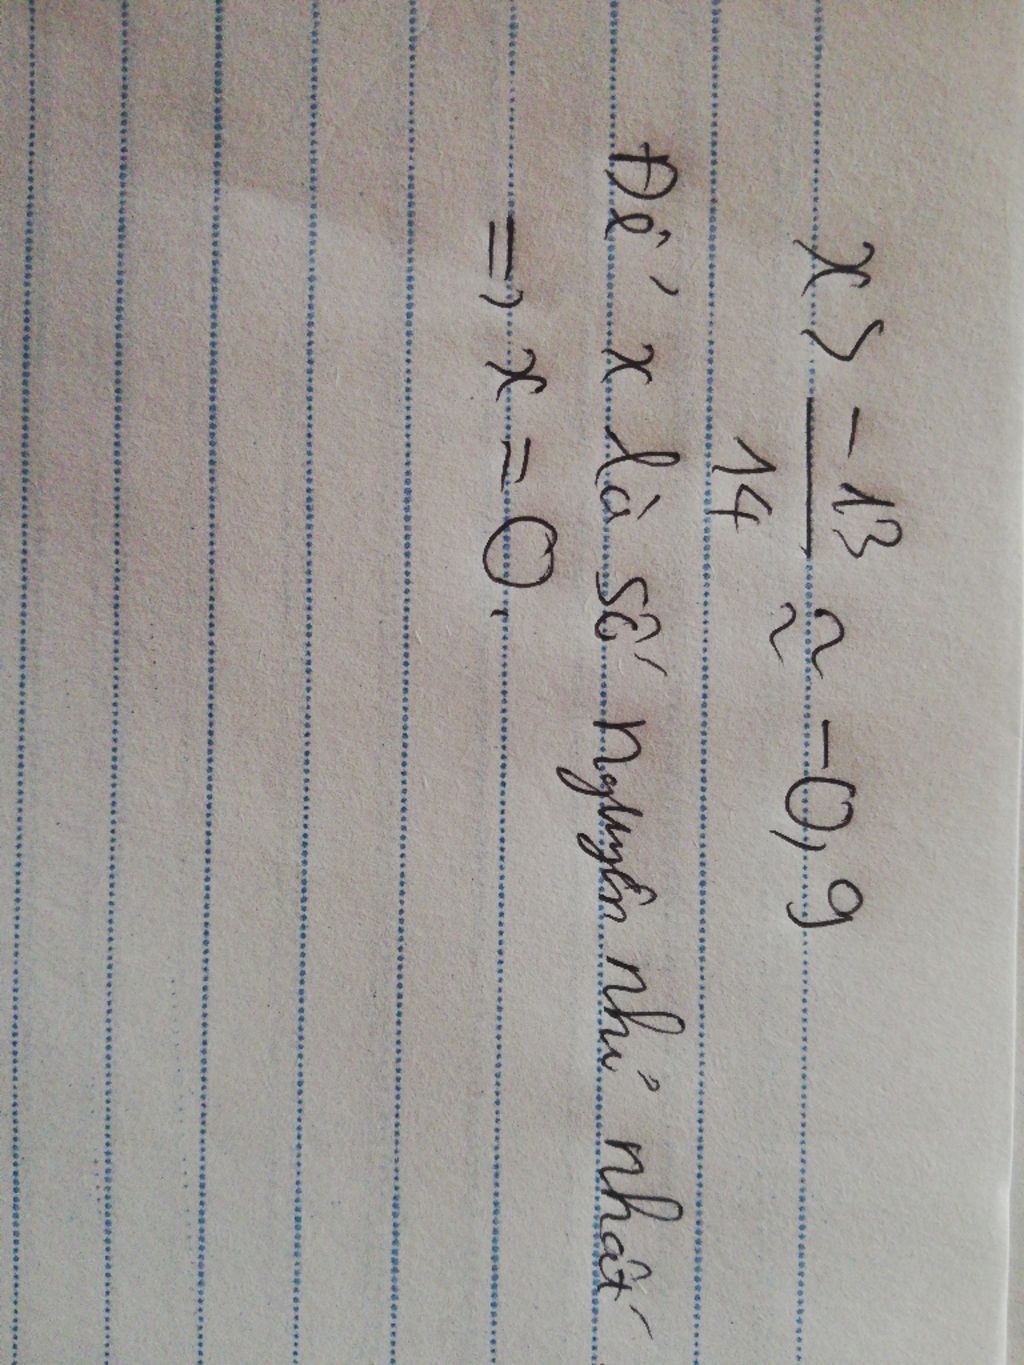 x > -13/14 ≈ -0,9
Để x là số nguyên nhỉ nhất
=> x = 0.